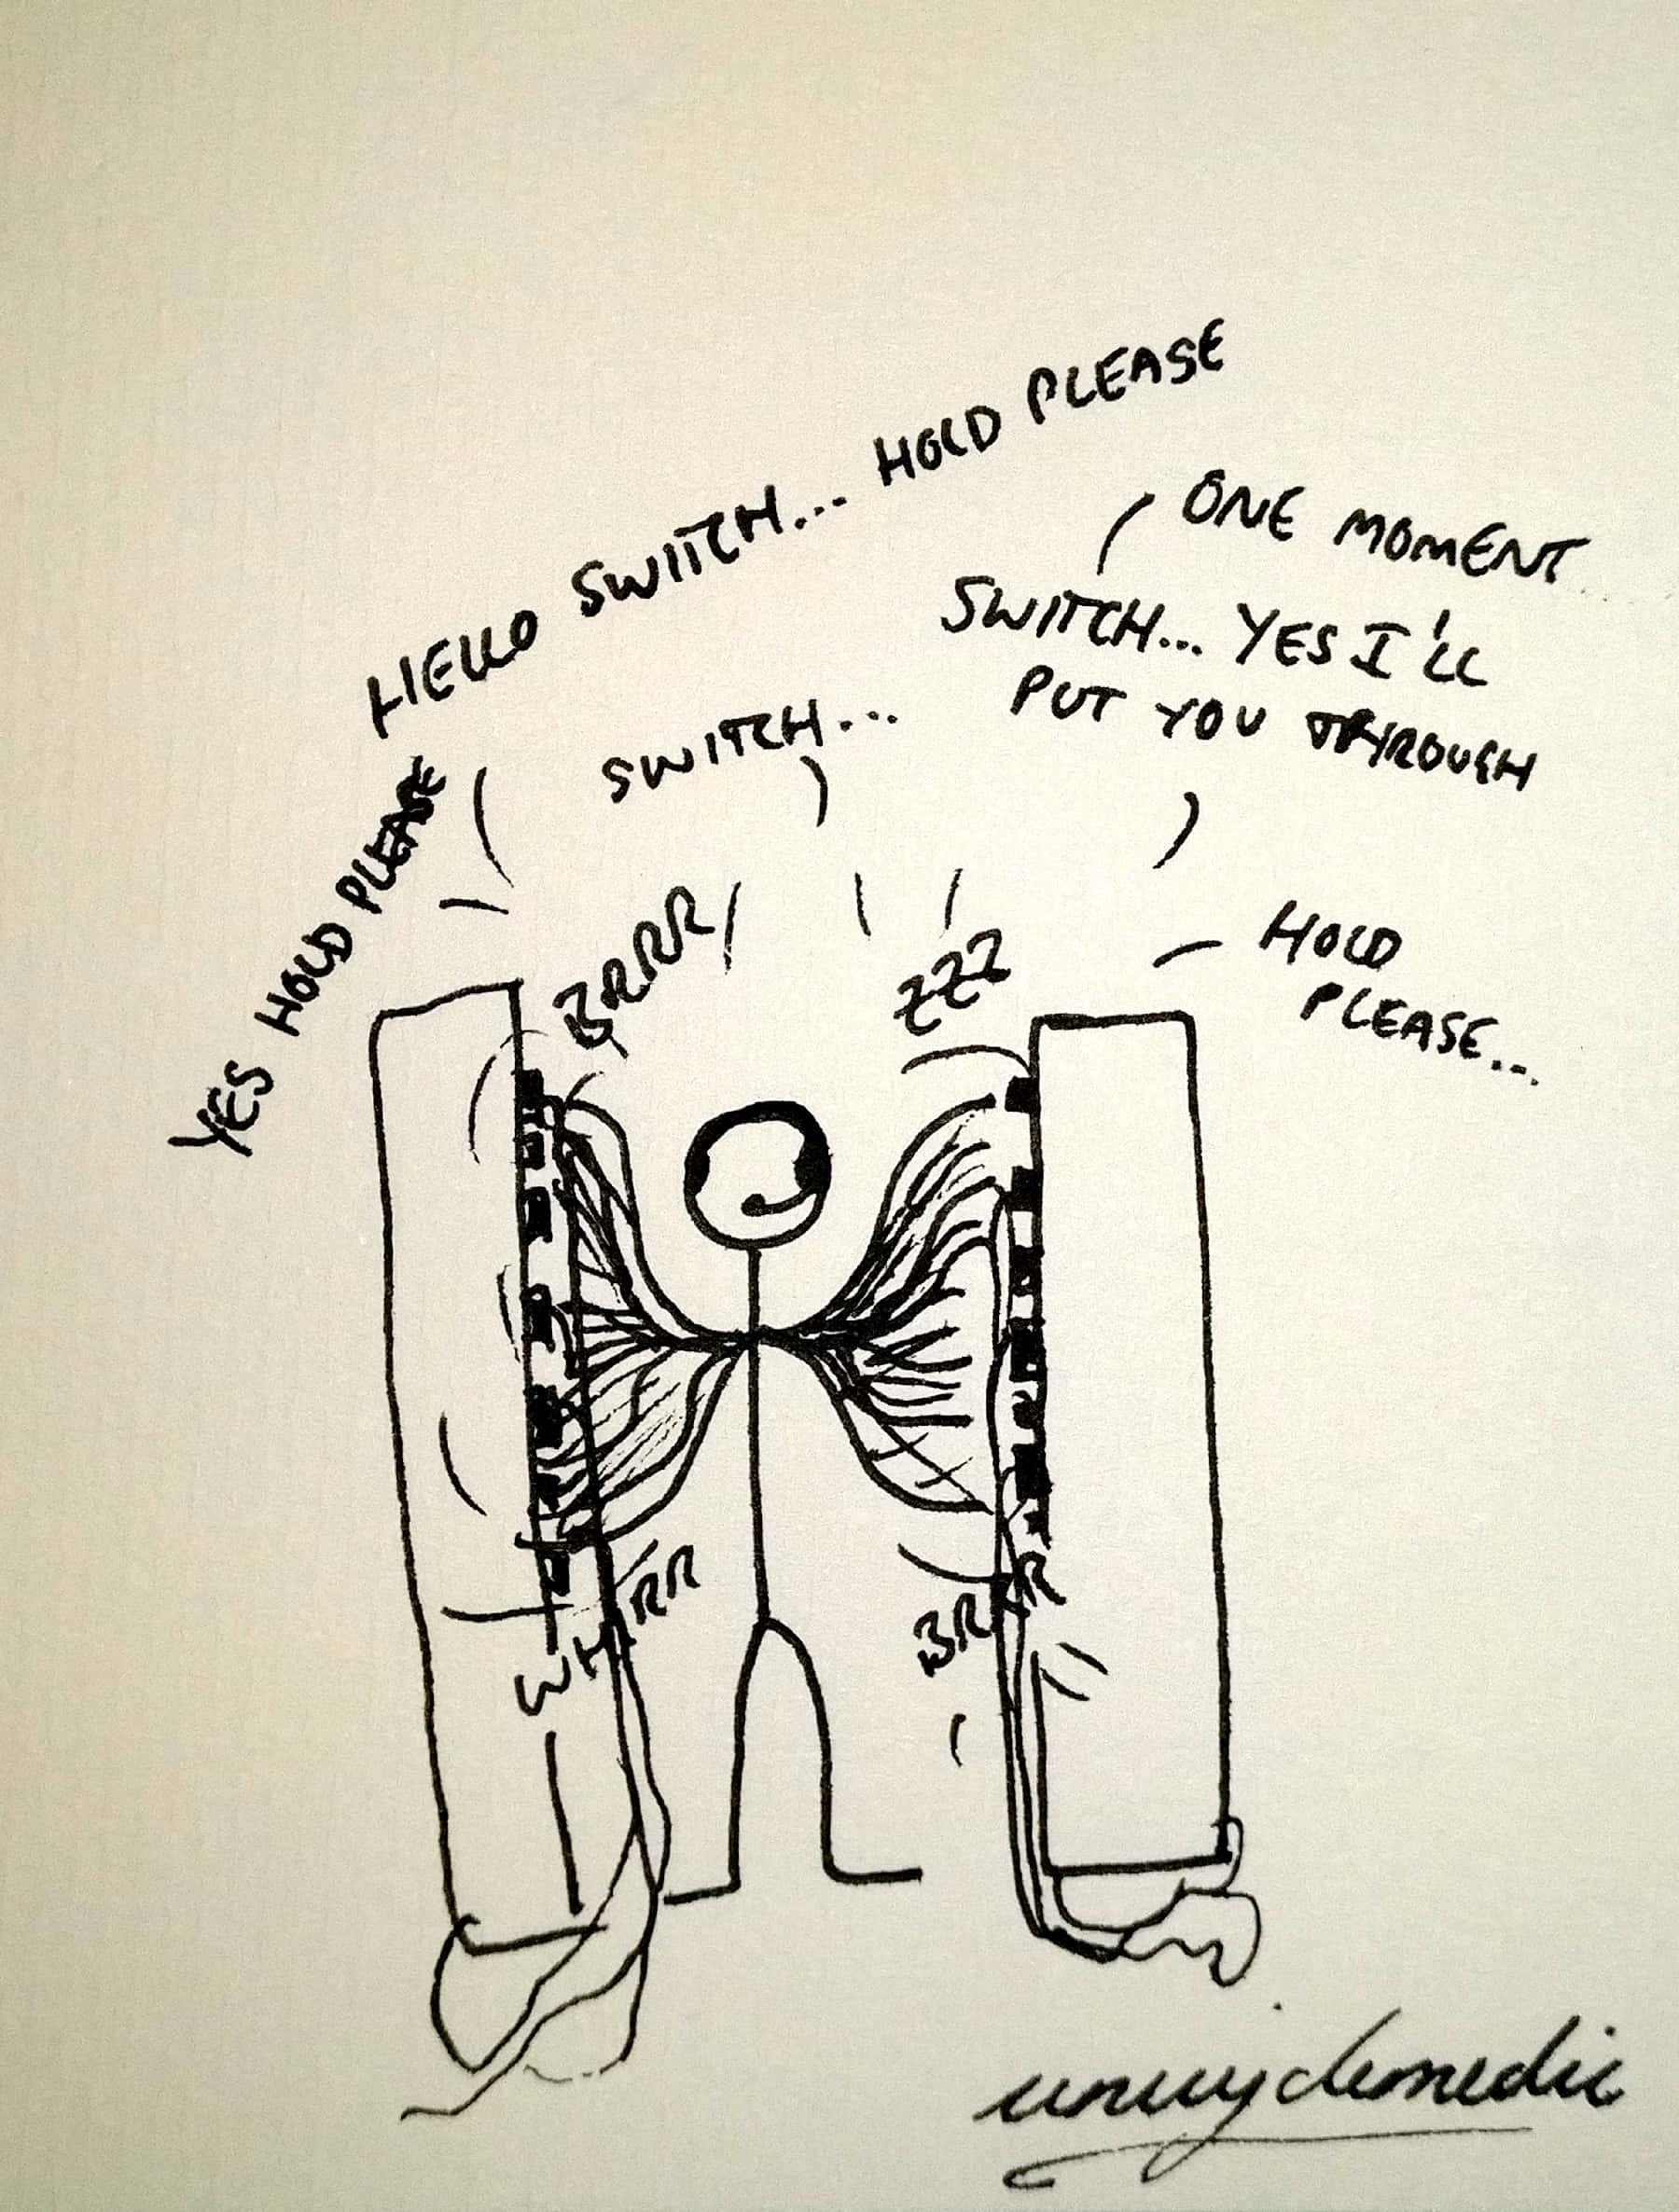 HELLO SWITCH... HOLD PLEASE
ONE MOMENT...
SWITCH... YES I'LL
PUT YOU THROUGH
SWITCH...
YES HOLD PLEASE
BRRR
ZZZ
HOLD
PLEASE...
WHIRR
BRRR